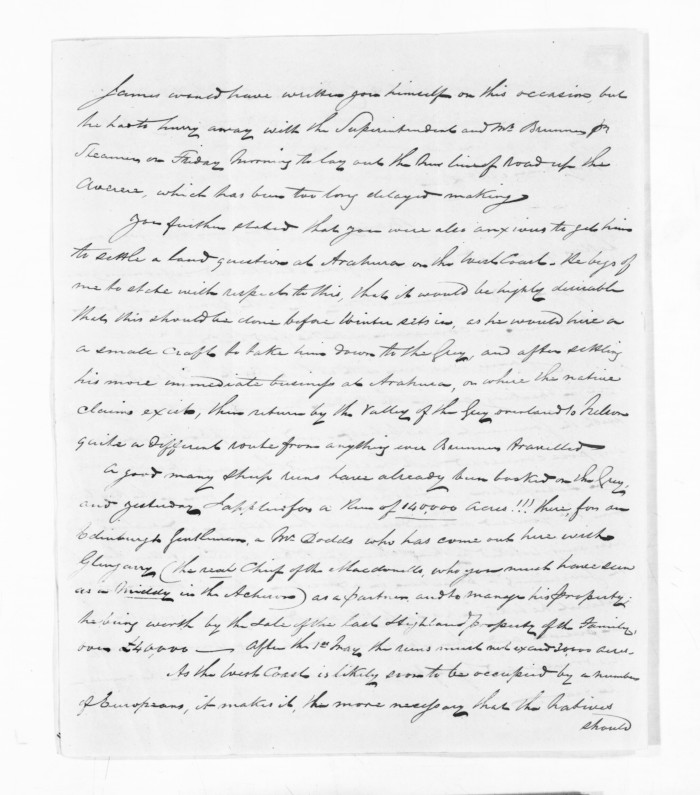 James would have written you himself on this occasion, but
he had to hurry away with the Superintendent and Mr. Brunner pr
Steamer on Friday Morning to lay out the New line of road up the
Averere, which has been too long delayed making
You further stated that you were also anxious to get him
to settle a land question at Arahura on the West Coast. He begs of
me to state with respect to this, that it would be highly desirable
that this should be done before Winter sets in, as he would hire a
a small craft to take him down to the Grey, and after settling
his more immediate business at Arahura, or where the native
claims exist, then return by the Valley of the Grey overland to Nelson
quite a different route from anything ever Brunner travelled
A good many Sheep runs have already been booked on the Grey,
and yesterday I applied for a Run of 140000 Acres!!! there, for an
Edinburgh Gentleman, a Mr. Dodds who has come out here with
Glengarry (the real Chief of the Macdonells, who you must have seen
as a Middy in the Acheron) as a partner and to manage his property;
he being worth by the Sale of the last Highland property of the Family,
over £40,000 — After the 1st May the runs must not exceed 20,000 acres.
As the West Coast is likely soon to be occupied by a number
of Europeans, it makes it, the more necessary that the Natives
should